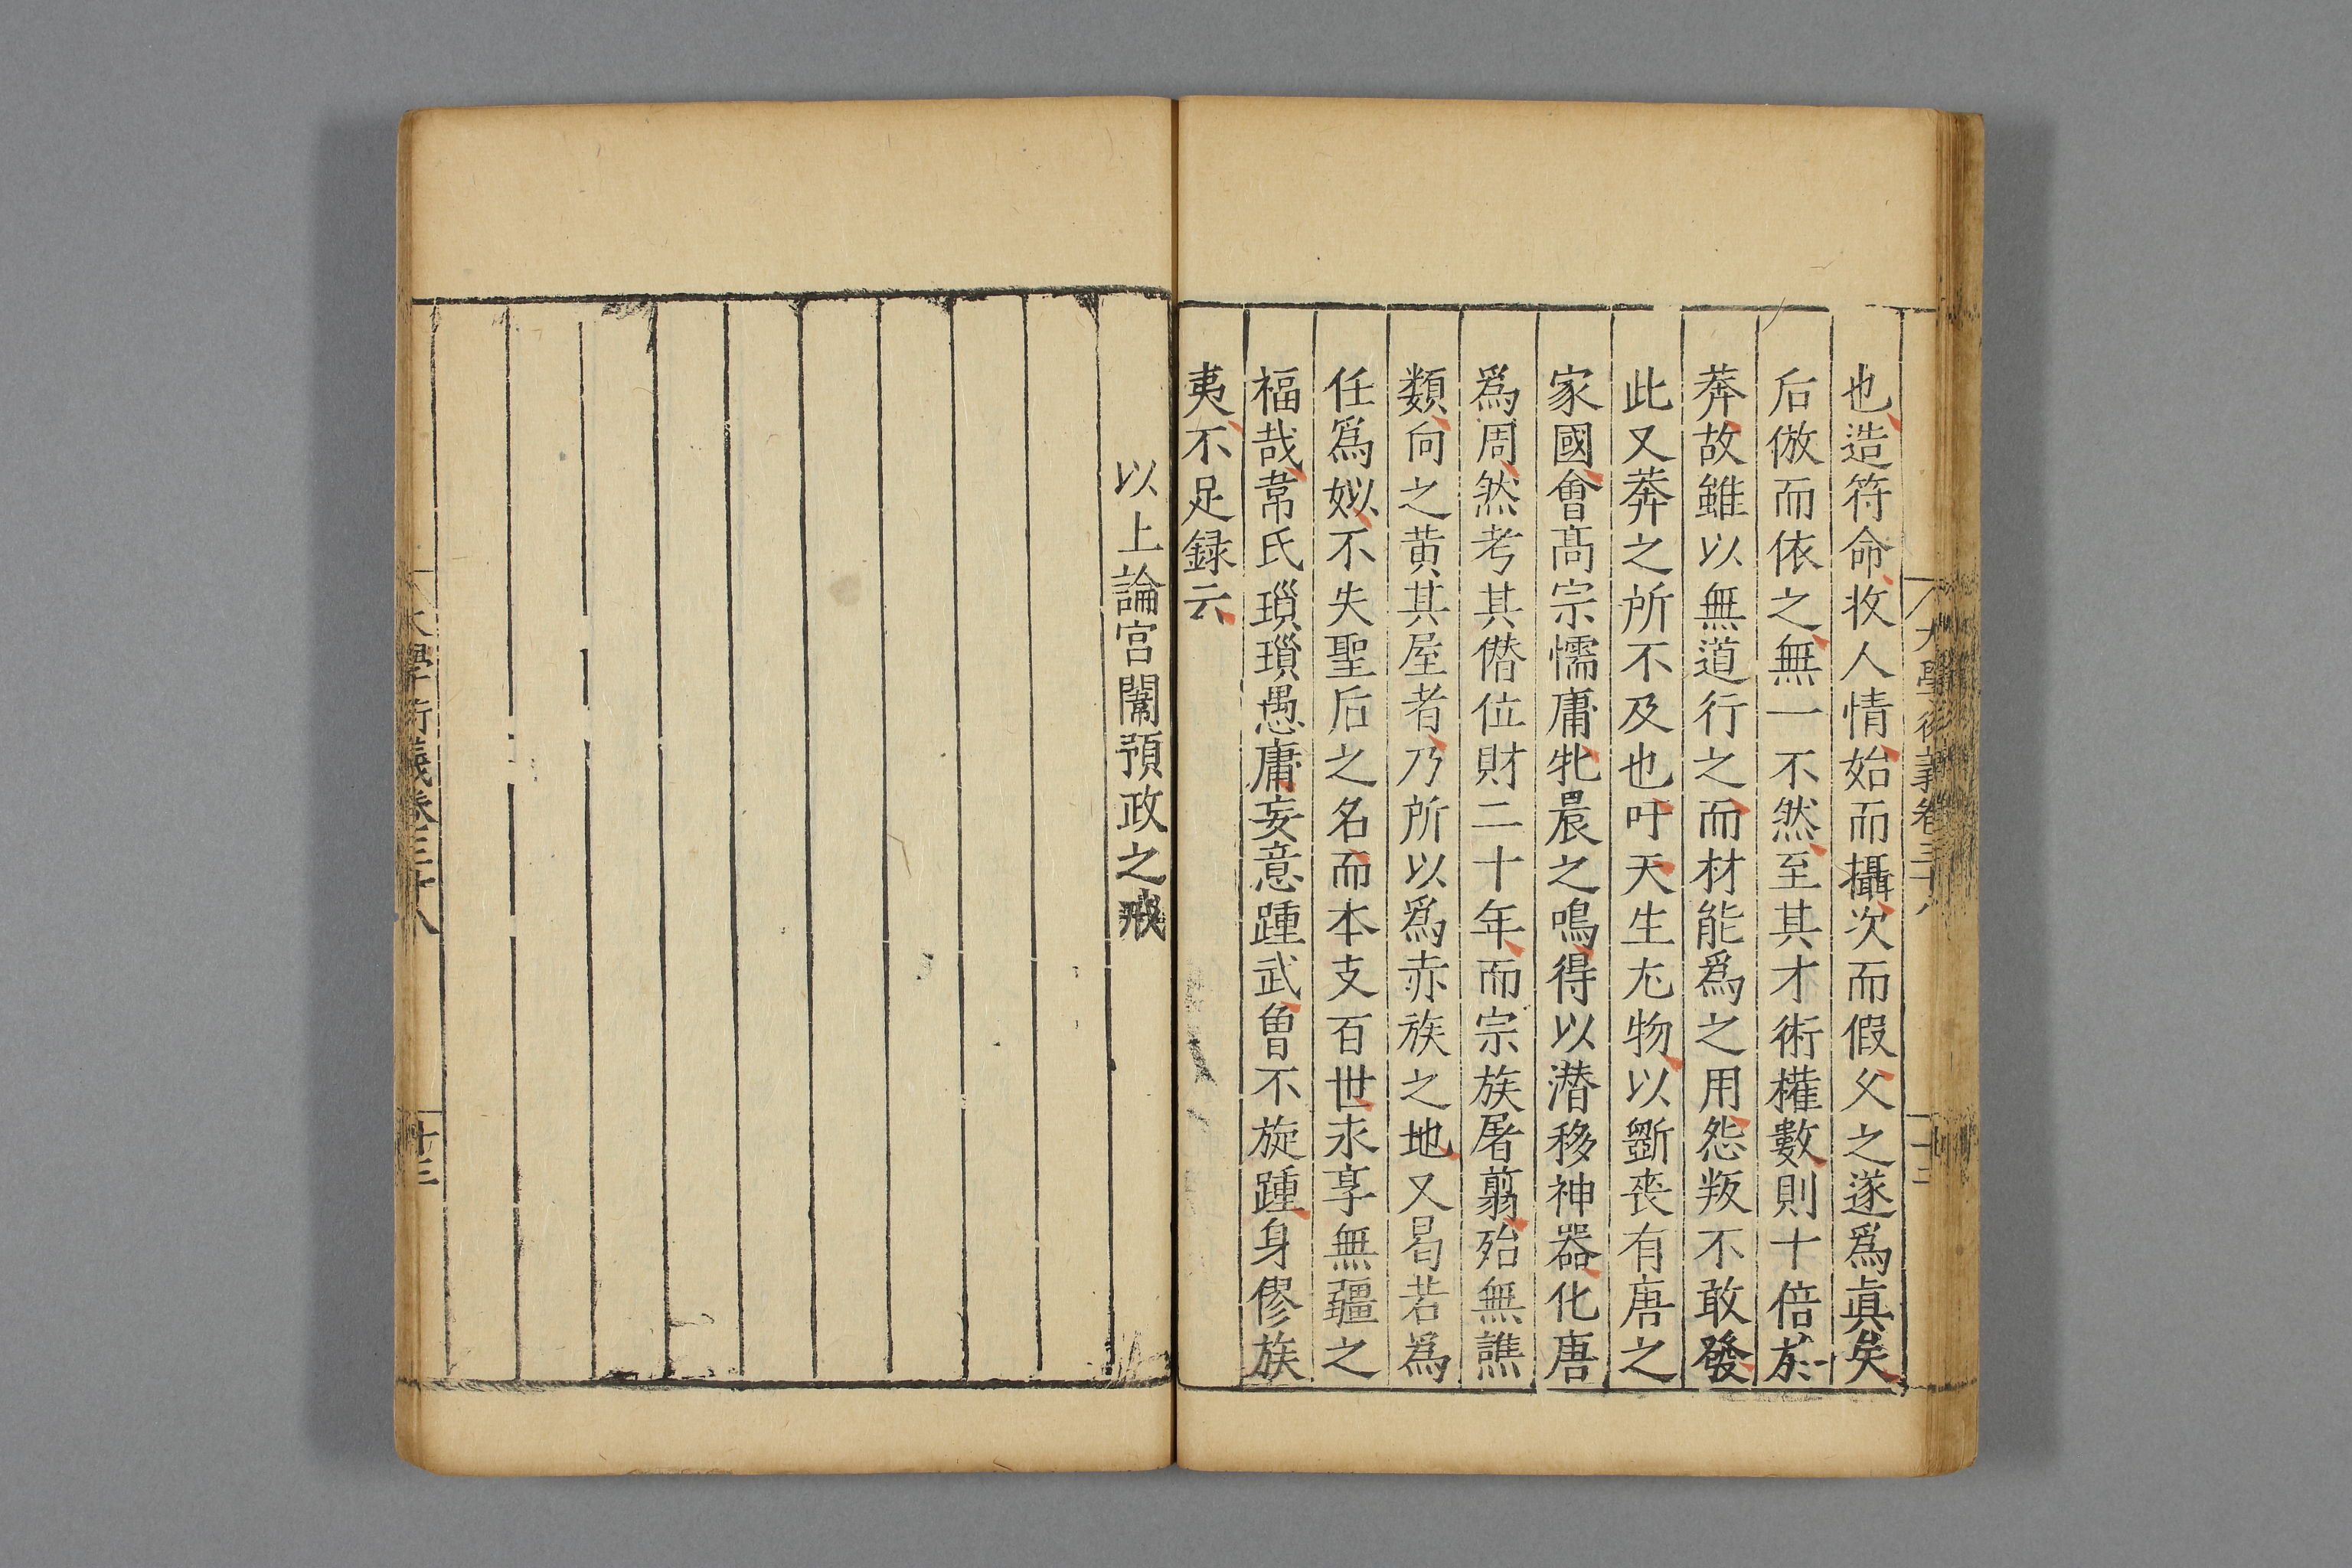 也造符命收人情始而攝次而假父之遂爲眞矣
后倣而依之無一不然至其才術權數則十倍於
莽故雖以無道行之而材能爲之用怨叛不敢發
此又莽之所不及也吁天生尤物以斵丧有唐之
家國會髙宗懦庸牝晨之鳴得以潜移神器化唐
爲周然考其僣位財二十年而宗族屠翦殆無譙
類向之黄其屋者乃所以爲赤族之地又曷若爲
任爲姒不失聖后之名而本支百世永享無疆之
福哉常氏瑣瑣愚庸妄意踵武曾不旋踵身僇族
夷不足録云
大學衍義卷三十八
十二
以上論宫闈預政之戒
大學衍義卷三十八
十三